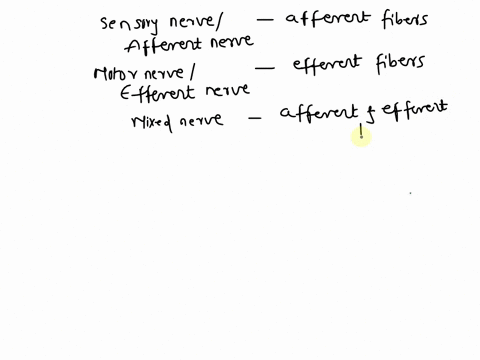 Sensory nerve/ — afferent fibers
Afferent nerve
Motor nerve/ — efferent fibers
Efferent nerve
Mixed nerve — afferent & efferent